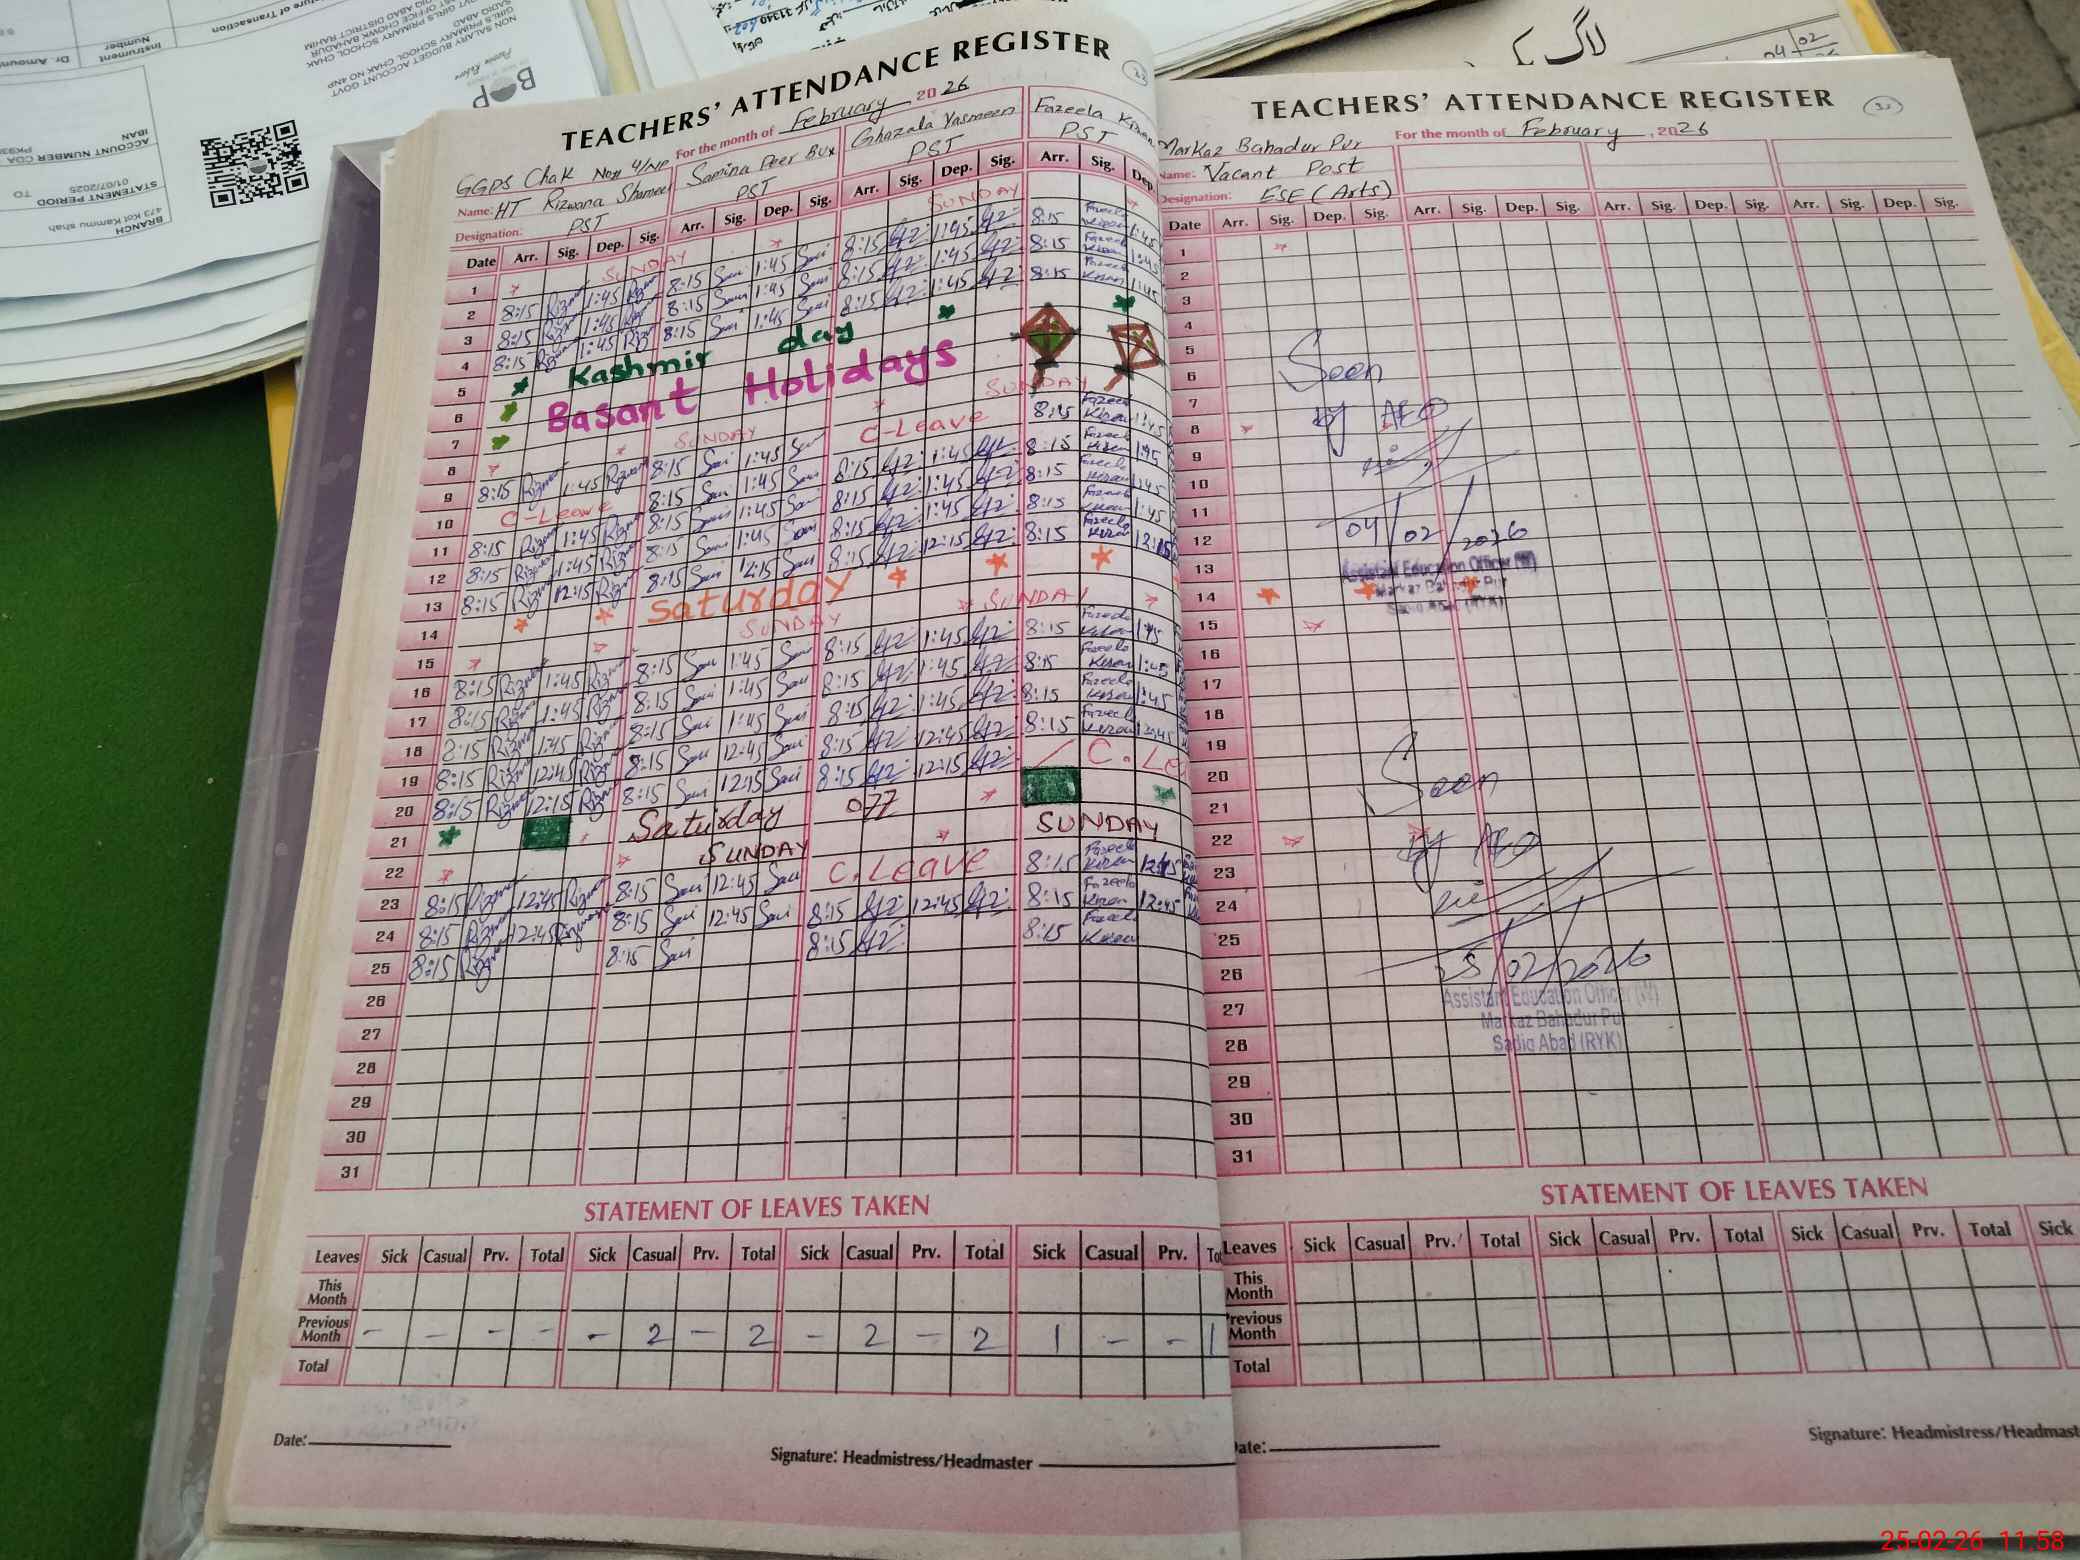 TEACHERS' ATTENDANCE REGISTER
For the month of February, 2026
GGPS Chak No 4/NP
Name: HT Rizwana Samina Peer Bux Ghazala Yasmeen Fazeela Kiran
Designation: PST PST PST PST
Date Arr. Sig. Dep. Sig. Arr. Sig. Dep. Sig. Arr. Sig. Dep. Sig. Arr. Sig. Dep.
1 SUNDAY SUNDAY
2 8:15 1:45 8:15 1:45 8:15 1:45 8:15 Fazeela Kiran 1:45
3 8:15 1:45 8:15 1:45 8:15 1:45 8:15 Fazeela Kiran 1:45
4 8:15 1:45 8:15 1:45 8:15 1:45 8:15 Fazeela Kiran 1:45
5 Kashmir day
6 Basant Holidays
7
8 SUNDAY SUNDAY
9 8:15 1:45 8:15 1:45 C-Leave 8:15 Fazeela Kiran 1:45
10 C-Leave 8:15 1:45 8:15 1:45 8:15 Fazeela Kiran 1:45
11 8:15 1:45 8:15 1:45 8:15 1:45 8:15 Fazeela Kiran 1:45
12 8:15 1:45 8:15 1:45 8:15 1:45 8:15 Fazeela Kiran 1:45
13 8:15 12:15 8:15 12:15 8:15 12:15 8:15 Fazeela Kiran 12:15
14 Saturday
15 SUNDAY SUNDAY
16 8:15 1:45 8:15 1:45 8:15 1:45 8:15 Fazeela Kiran 1:45
17 8:15 1:45 8:15 1:45 8:15 1:45 8:15 Fazeela Kiran 1:45
18 8:15 1:45 8:15 1:45 8:15 1:45 8:15 Fazeela Kiran 1:45
19 8:15 12:45 8:15 12:45 8:15 12:45 8:15 Fazeela Kiran 12:45
20 8:15 12:15 8:15 12:15 8:15 12:15 C.Lea
21 Saturday off
22 SUNDAY SUNDAY
23 8:15 12:45 8:15 12:45 C.Leave 8:15 Fazeela Kiran 12:45
24 8:15 12:45 8:15 12:45 8:15 12:45 8:15 Fazeela Kiran 12:45
25 8:15 8:15 8:15 8:15 Fazeela Kiran
26
27
28
29
30
31
STATEMENT OF LEAVES TAKEN
Leaves Sick Casual Prv. Total Sick Casual Prv. Total Sick Casual Prv. Total Sick Casual Prv.
This Month
Previous Month - - - - - 2 - 2 - 2 - 2 1 - - 1
Total
Date:
Signature: Headmistress/Headmaster
TEACHERS' ATTENDANCE REGISTER
For the month of February, 2026
Markaz Bahadur Pur
Name: Vacant Post
Designation: ESE (Arts)
Date Arr. Sig. Dep. Sig. Arr. Sig. Dep. Sig. Arr. Sig. Dep. Sig. Arr. Sig. Dep. Sig.
1
2
3
4
5
6
7
8
9
10
11
12
13
14
15
16
17
18
19
20
21
22
23
24
25
26
27
28
29
30
31
Seen
by AEO
04/02/2026
Assistant Education Officer (W)
Markaz Bahadur Pur
Sadiq Abad (RYK)
Seen
by AEO
25/02/2026
Assistant Education Officer (W)
Markaz Bahadur Pur
Sadiq Abad (RYK)
STATEMENT OF LEAVES TAKEN
Leaves Sick Casual Prv. Total Sick Casual Prv. Total Sick Casual Prv. Total Sick
This Month
Previous Month
Total
Date:
Signature: Headmistress/Headmast
BOP
NON SALARY BUDGET ACCOUNT GOVT
GIRLS PRIMARY SCHOOL CHAK NO 4NP
Instrument Number
Dr. Amoun
IBAN
ACCOUNT NUMBER CDA
STATEMENT PERIOD
01/07/2025 TO
BRANCH
473 Kot Kammu shah
لاگ
04/02
25-02-26 11:58